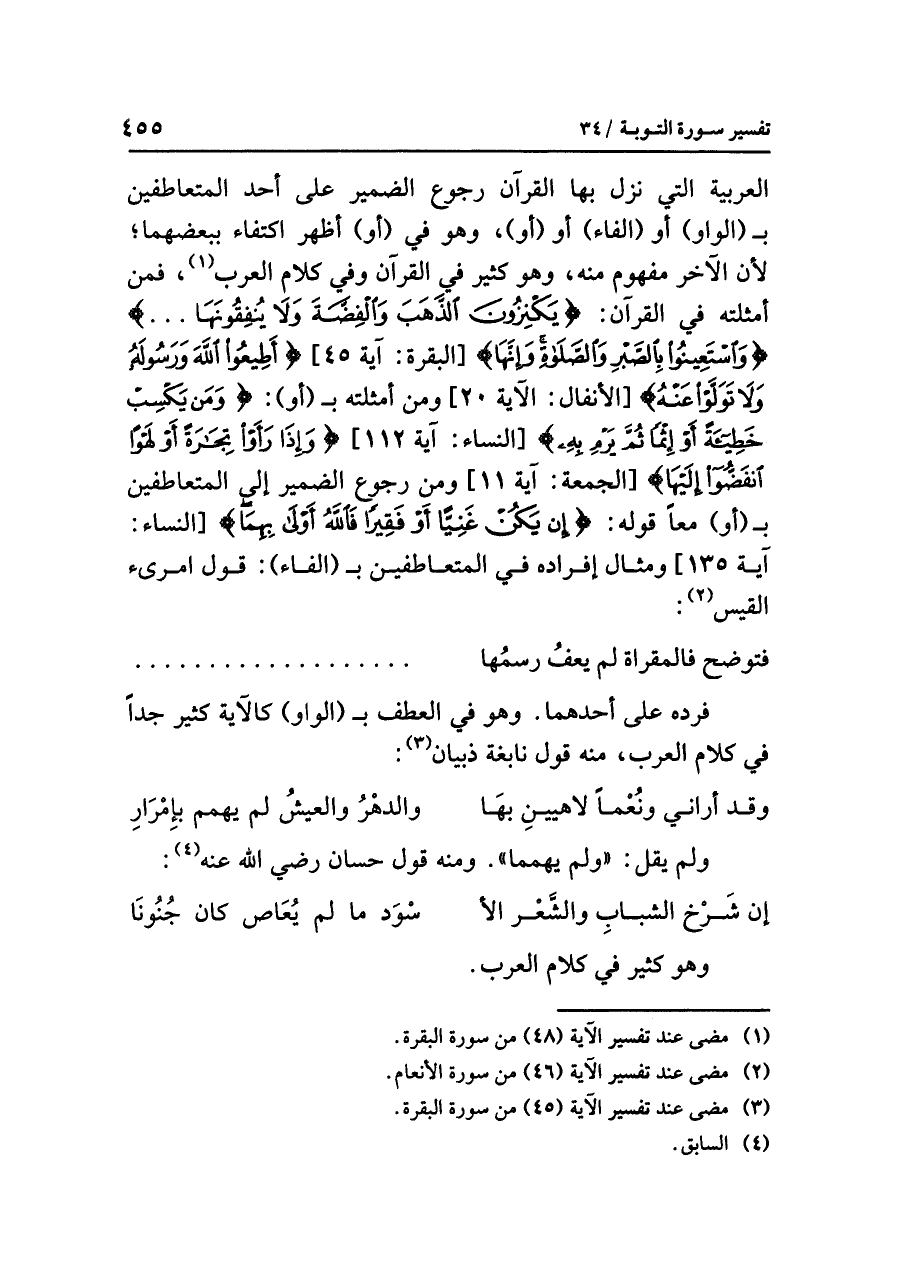 تفسير سورة التوبة / ٣٤ ٤٥٥
العربية التي نزل بها القرآن رجوع الضمير على أحد المتعاطفين
بـ (الواو) أو (الفاء) أو (أو)، وهو في (أو) أظهر اكتفاء ببعضهما؛
لأن الآخر مفهوم منه، وهو كثير في القرآن وفي كلام العرب(١)، فمن
أمثلته في القرآن: ﴿يَكْنِزُونَ ٱلذَّهَبَ وَٱلْفِضَّةَ وَلَا يُنفِقُونَهَا ...﴾
﴿وَٱسْتَعِينُوا۟ بِٱلصَّبْرِ وَٱلصَّلَوٰةِۚ وَإِنَّهَا﴾ [البقرة: آية ٤٥] ﴿أَطِيعُوا۟ ٱللَّهَ وَرَسُولَهُۥ
وَلَا تَوَلَّوْا۟ عَنْهُ﴾ [الأنفال: الآية ٢٠] ومن أمثلته بـ (أو): ﴿وَمَن يَكْسِبْ
خَطِيٓـَٔةً أَوْ إِثْمًا ثُمَّ يَرْمِ بِهِۦ﴾ [النساء: آية ١١٢] ﴿وَإِذَا رَأَوْا۟ تِجَـٰرَةً أَوْ لَهْوًا
ٱنفَضُّوٓا۟ إِلَيْهَا﴾ [الجمعة: آية ١١] ومن رجوع الضمير إلى المتعاطفين
بـ (أو) معاً قوله: ﴿إِن يَكُنْ غَنِيًّا أَوْ فَقِيرًا فَٱللَّهُ أَوْلَىٰ بِهِمَاۖ﴾ [النساء:
آية ١٣٥] ومثال إفراده في المتعاطفين بـ (الفاء): قول امرىء
القيس(٢):
فتوضح فالمقراة لم يعفُ رسمُها ...................
فرده على أحدهما. وهو في العطف بـ (الواو) كالآية كثير جداً
في كلام العرب، منه قول نابغة ذبيان(٣):
وقد أراني ونُعْماً لاهيينِ بهَا والدهْرُ والعيشُ لم يهمم بإِمْرَارِ
ولم يقل: «ولم يهمما». ومنه قول حسان رضي الله عنه(٤):
إن شَرْخ الشبابِ والشَّعْر الأ سْوَد ما لم يُعَاص كان جُنُونَا
وهو كثير في كلام العرب.
(١) مضى عند تفسير الآية (٤٨) من سورة البقرة.
(٢) مضى عند تفسير الآية (٤٦) من سورة الأنعام.
(٣) مضى عند تفسير الآية (٤٥) من سورة البقرة.
(٤) السابق.